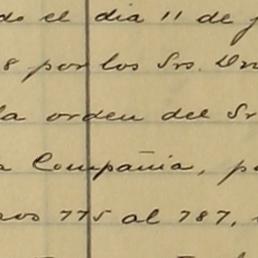 do el dia 11 de
8 por los Srs.
la orden del Sr
a Compañia,
nos 775 al 787,